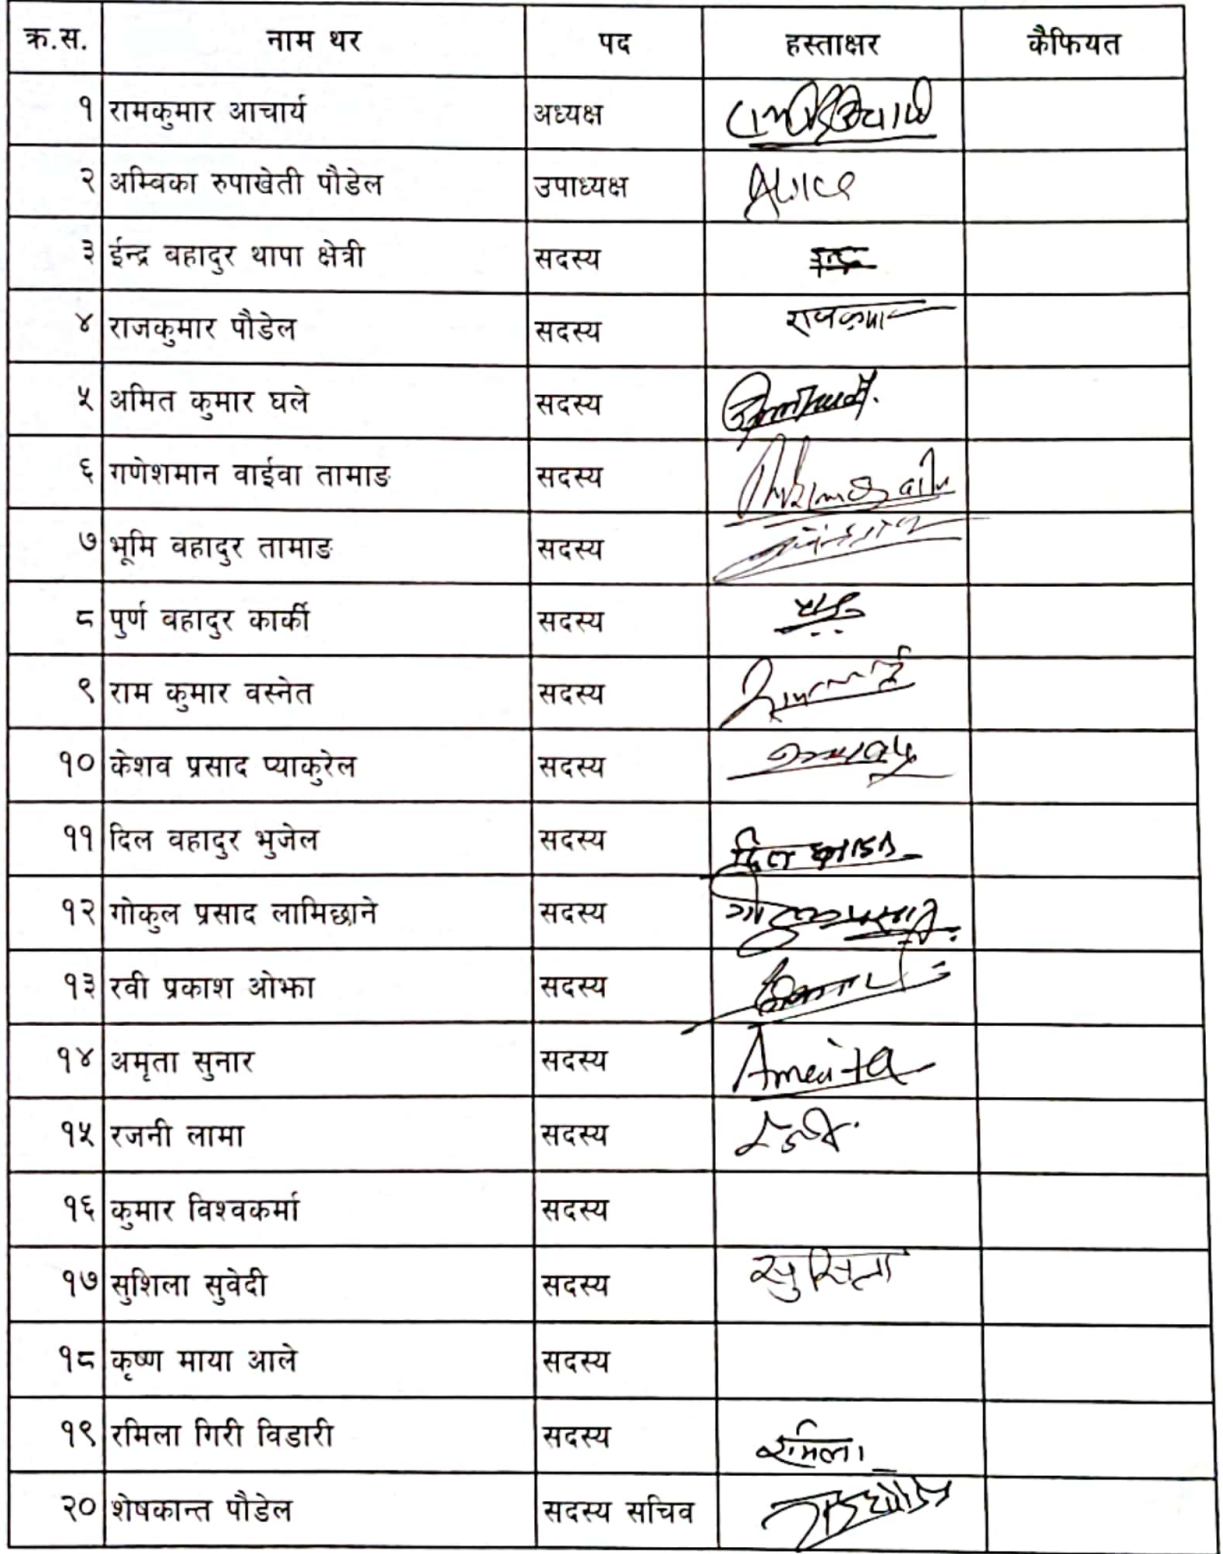 क्र.स. नाम थर पद हस्ताक्षर कैफियत
१ रामकुमार आचार्य अध्यक्ष
२ अम्विका रुपाखेती पौडेल उपाध्यक्ष
३ ईन्द्र वहादुर थापा क्षेत्री सदस्य
४ राजकुमार पौडेल सदस्य
५ अमित कुमार घले सदस्य
६ गणेशमान वाईवा तामाङ सदस्य
७ भूमि वहादुर तामाङ सदस्य
८ पुर्ण वहादुर कार्की सदस्य
९ राम कुमार वस्नेत सदस्य
१० केशव प्रसाद प्याकुरेल सदस्य
११ दिल वहादुर भुजेल सदस्य
१२ गोकुल प्रसाद लामिछाने सदस्य
१३ रवी प्रकाश ओझा सदस्य
१४ अमृता सुनार सदस्य Amrita
१५ रजनी लामा सदस्य
१६ कुमार विश्वकर्मा सदस्य
१७ सुशिला सुवेदी सदस्य
१८ कृष्ण माया आले सदस्य
१९ रमिला गिरी विडारी सदस्य रमिला
२० शेषकान्त पौडेल सदस्य सचिव